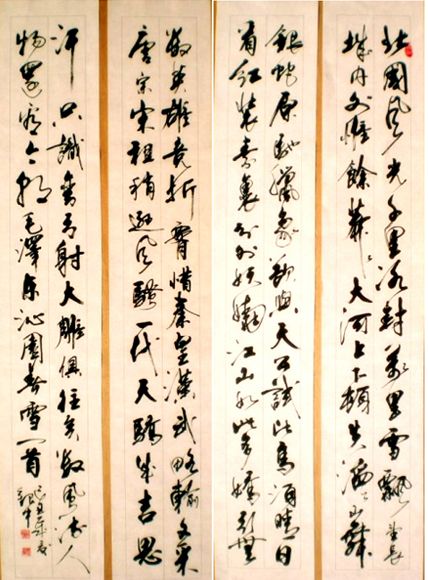 北國風光千里冰封萬里雪飄望長
城内外惟餘莽々大河上下頓失滔々山舞
銀蛇原馳蠟象欲與天公試比高須晴日
看紅裝素裹分外妖嬈江山如此多嬌引無
數英雄競折腰惜秦皇漢武略輸文采
唐宗宋祖稍遜風騷一代天驕成吉思
汗只識彎弓射大雕俱往矣數風流人
物還看今朝毛澤東沁園春雪一首